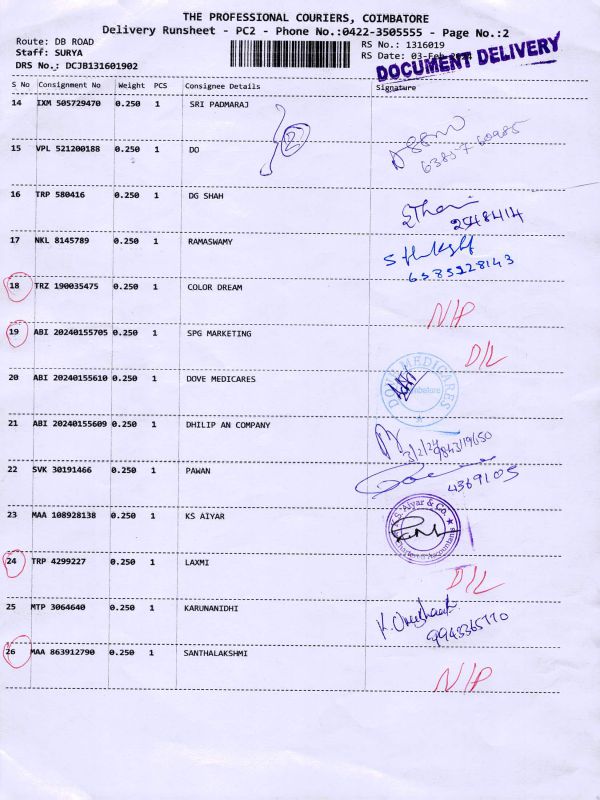 THE PROFESSIONAL COURIERS, COIMBATORE
Delivery Runsheet - PC2 - Phone No.:0422-3505555 - Page No.:2
Route: DB ROAD RS No.: 1316019
Staff: SURYA RS Date: 03-Feb
DRS No.: DCJB131601902 DOCUMENT DELIVERY
S No Consignment No Weight PCS Consignee Details Signature
14 IXM 505729470 0.250 1 SRI PADMARAJ
2
15 VPL 521200188 0.250 1 DO
16 TRP 580416 0.250 1 DG SHAH
2548414
17 NKL 8145789 0.250 1 RAMASWAMY
6385228143
18 TRZ 190035475 0.250 1 COLOR DREAM N/P
19 ABI 20240155705 0.250 1 SPG MARKETING D/L
20 ABI 20240155610 0.250 1 DOVE MEDICARES DOVE MEDICARES
21 ABI 20240155609 0.250 1 DHILIP AN COMPANY
3/2/24 9843119650
22 SVK 30191466 0.250 1 PAWAN
4369105
23 MAA 108928138 0.250 1 KS AIYAR S. Aiyar & Co. Chartered Accountants
24 TRP 4299227 0.250 1 LAXMI D/L
25 MTP 3064640 0.250 1 KARUNANIDHI
26 MAA 863912790 0.250 1 SANTHALAKSHMI N/P